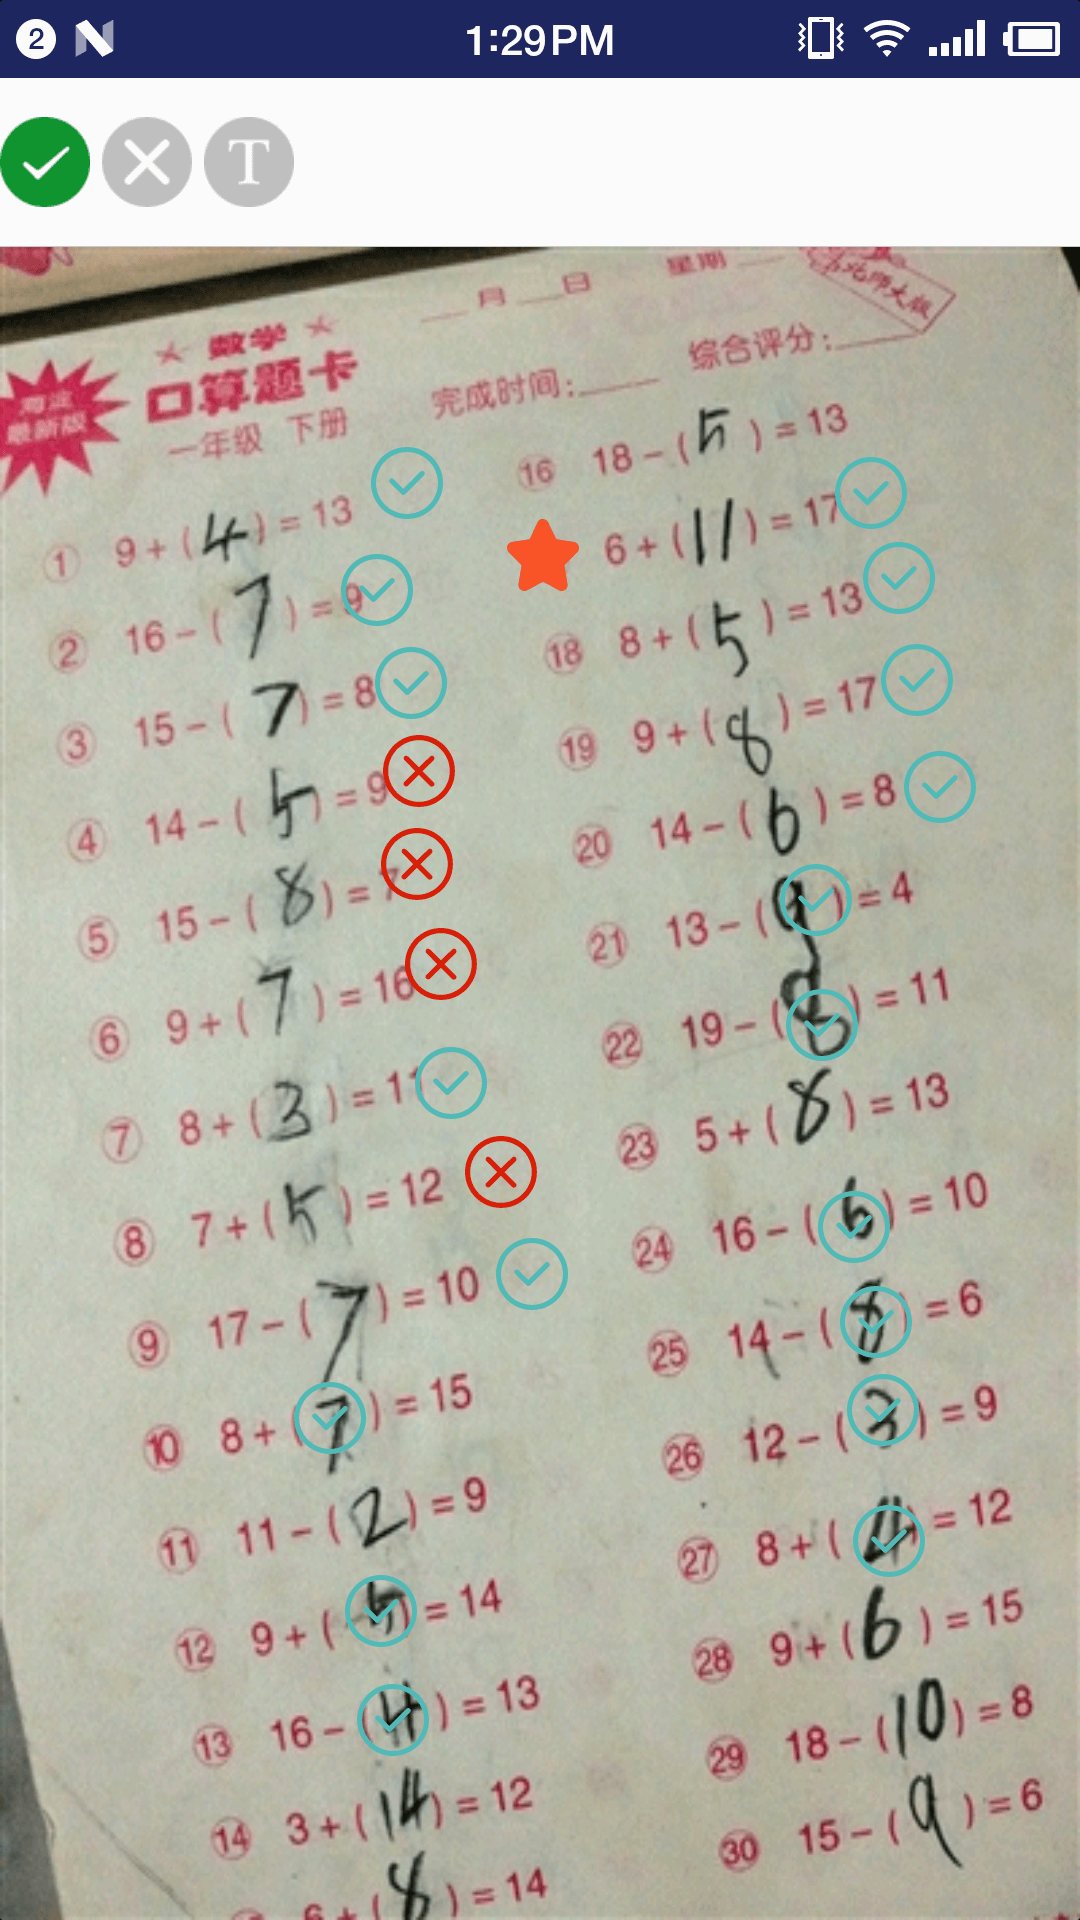 2 1:29PM
T
月 日 星期
北师大版
数学
口算题卡
最新版
一年级 下册
完成时间: 综合评分:
① 9+(4)=13
② 16-(7)=9
③ 15-(7)=8
④ 14-(5)=9
⑤ 15-(8)=7
⑥ 9+(7)=16
⑦ 8+(3)=11
⑧ 7+(5)=12
⑨ 17-(7)=10
⑩ 8+(7)=15
⑪ 11-(2)=9
⑫ 9+(5)=14
⑬ 16-(4)=13
⑭ 3+(14)=12
6+(8)=14
⑯ 18-(5)=13
6+(11)=17
⑱ 8+(5)=13
⑲ 9+(8)=17
⑳ 14-(6)=8
㉑ 13-(9)=4
㉒ 19-(8)=11
㉓ 5+(8)=13
㉔ 16-(6)=10
㉕ 14-(8)=6
㉖ 12-(3)=9
㉗ 8+(4)=12
㉘ 9+(6)=15
㉙ 18-(10)=8
㉚ 15-(9)=6